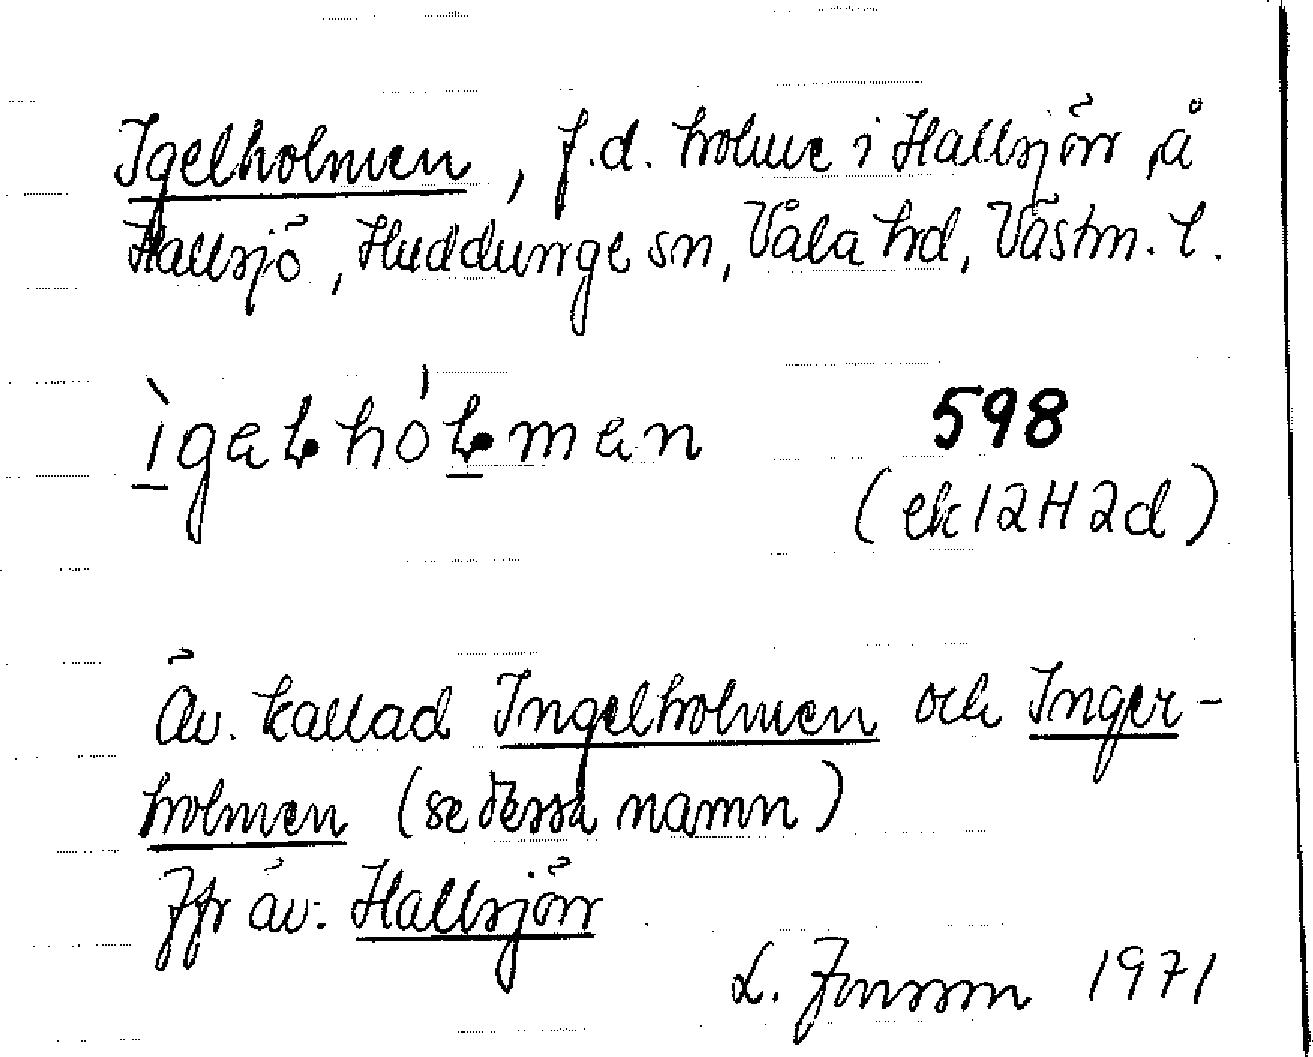 Igelholmen, f.d. holme i Hallsjön, å
Hallsjö, Huddunge sn, Våla hd, Västm. l.
ìgelhólmen 598
(ek 12H2d)
Äv. kallad Ingelholmen och Inger-
holmen (se dessa namn)
Jfr äv: Hallsjön
L. Jonsson 1971